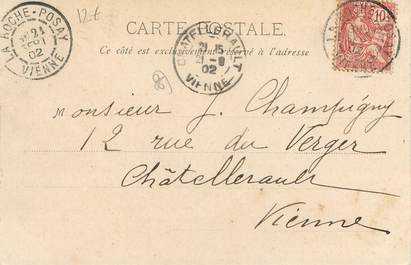 12€
CARTE POSTALE.
Ce côté est exclusivement réservé à l'adresse
LA ROCHE-POSAY
21
02
VIENNE
CHATELLERAULT
21
02
VIENNE
10
Monsieur J. Champigny
12 rue du Verger
Châtellerault
Vienne